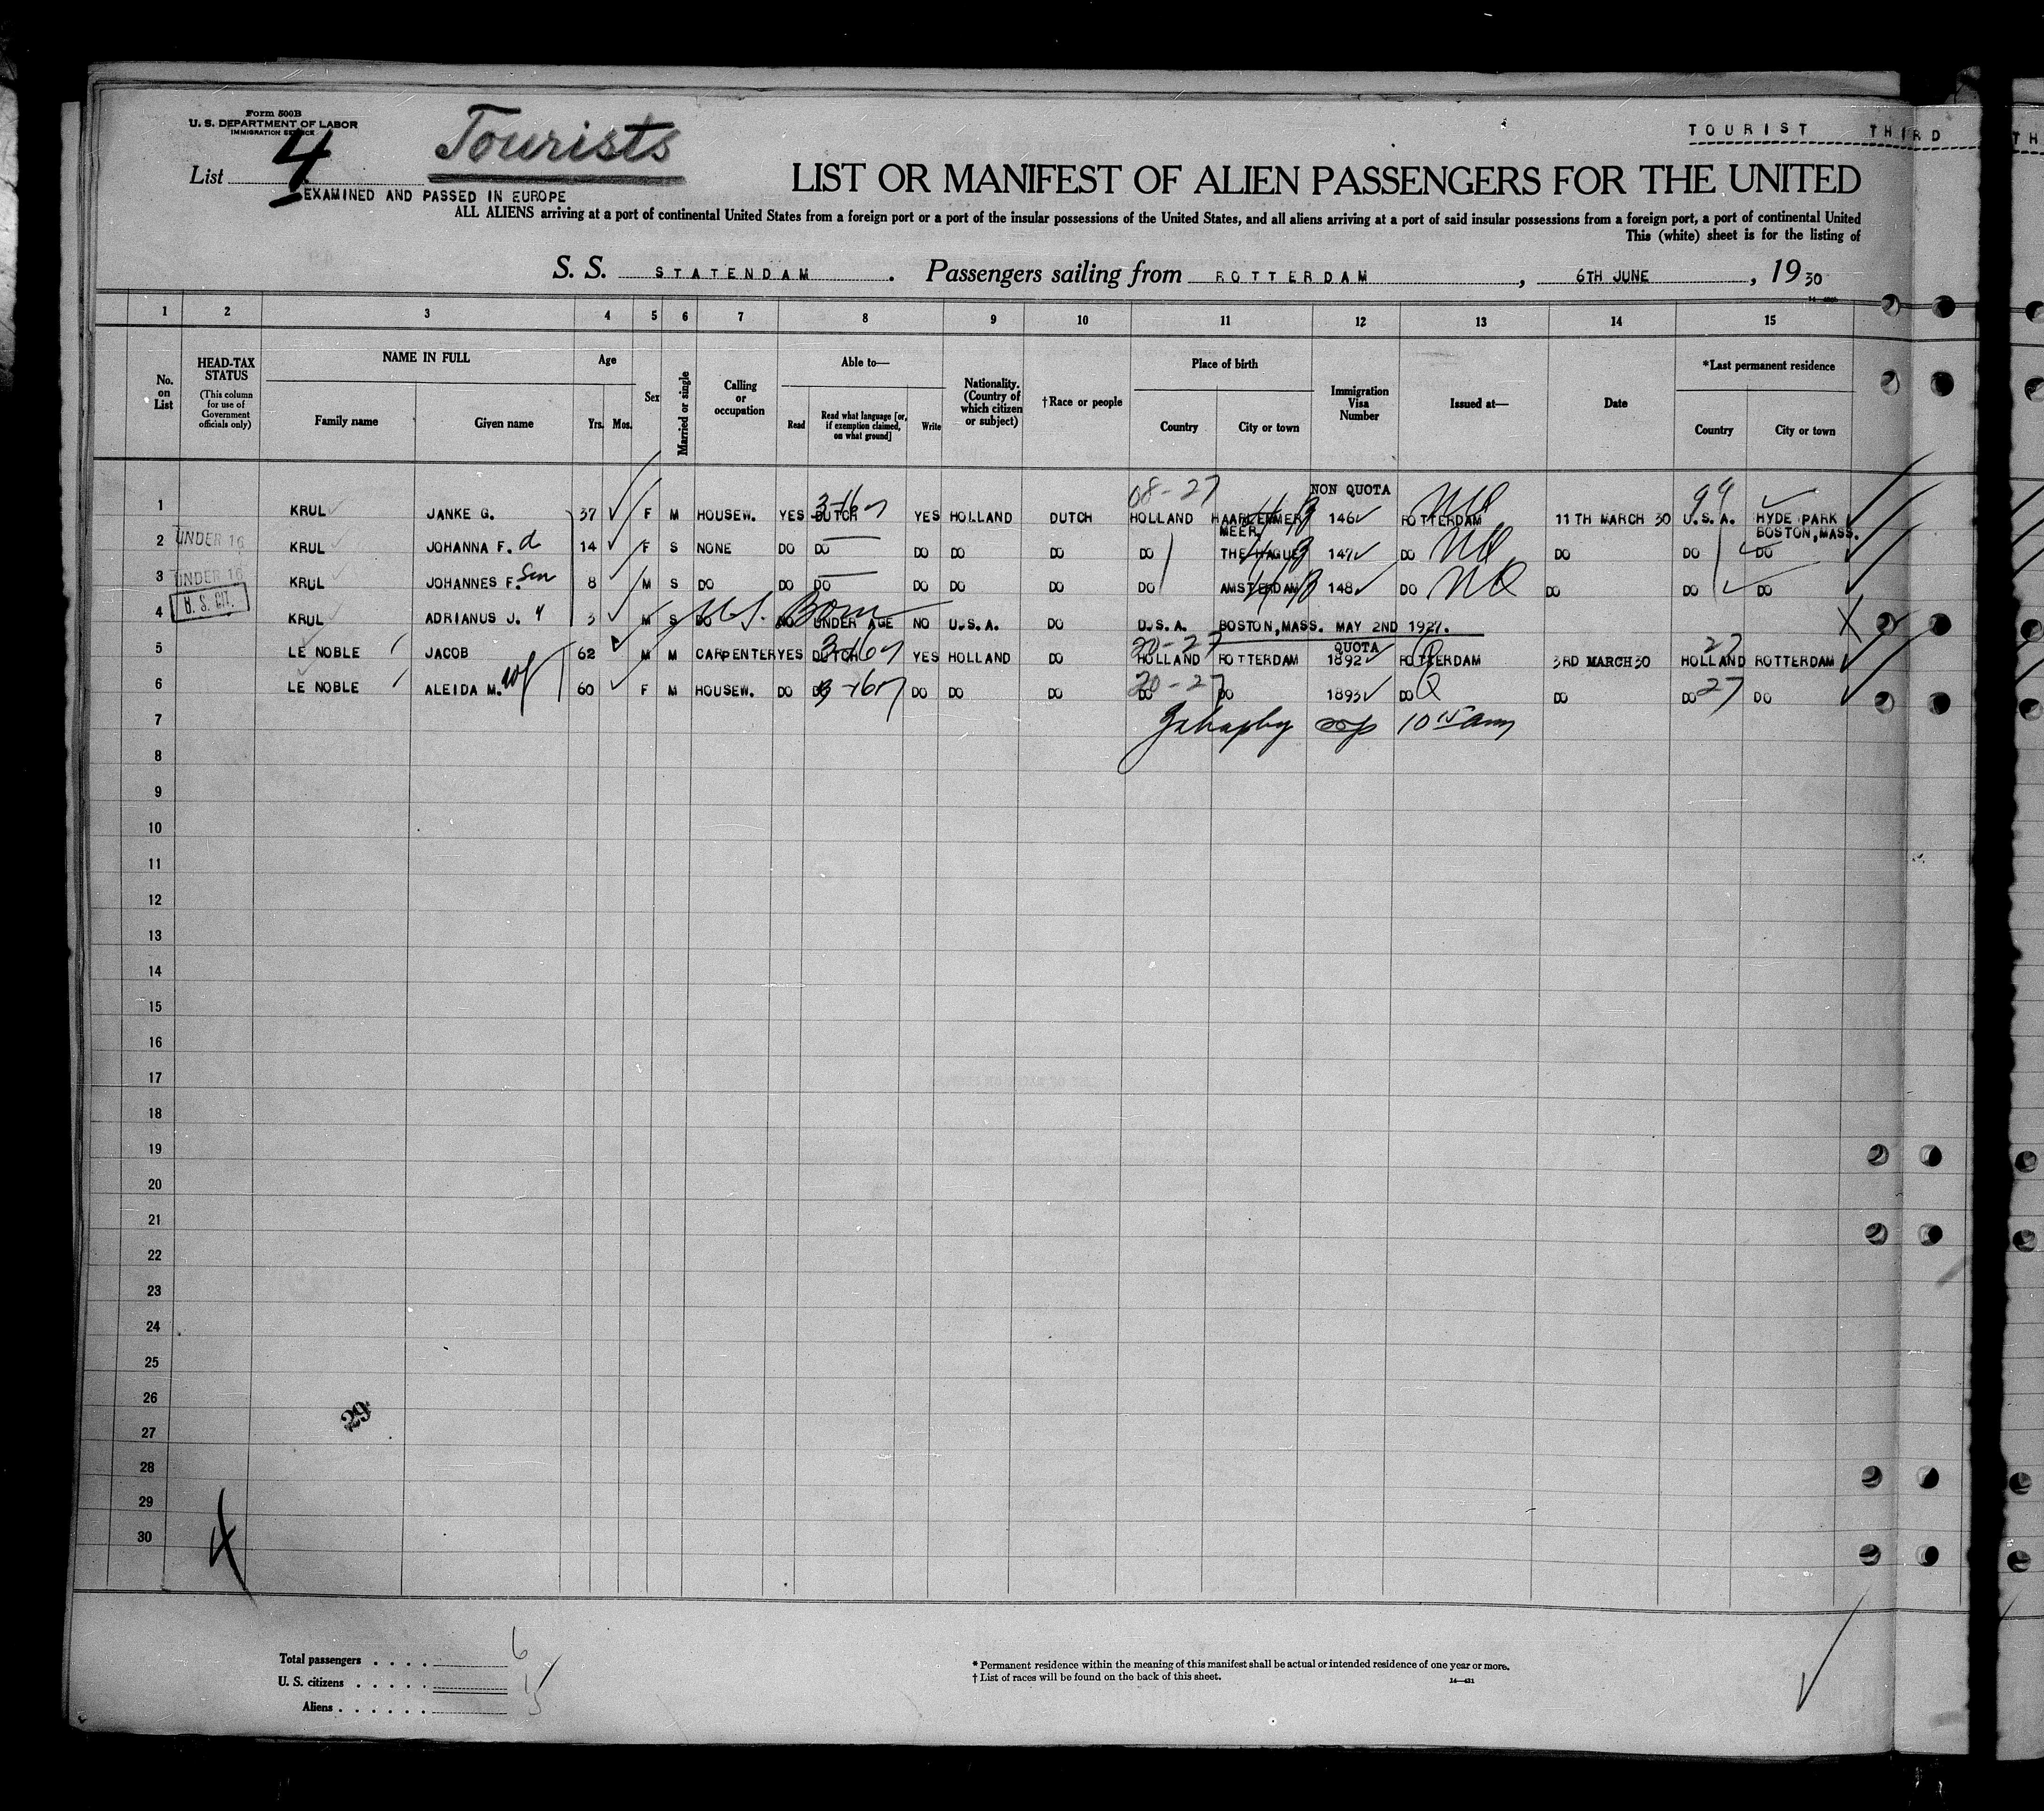 Form 500B
U. S. DEPARTMENT OF LABOR
IMMIGRATION SERVICE
Tourists
TOURIST THIRD
List 4
LIST OR MANIFEST OF ALIEN PASSENGERS FOR THE UNITED
EXAMINED AND PASSED IN EUROPE
ALL ALIENS arriving at a port of continental United States from a foreign port or a port of the insular possessions of the United States, and all aliens arriving at a port of said insular possessions from a foreign port, a port of continental United
This (white) sheet is for the listing of
S. S. STATENDAM. Passengers sailing from ROTTERDAM, 6TH JUNE, 1930
1 2 3 4 5 6 7 8 9 10 11 12 13 14 15
No. on List
HEAD-TAX STATUS (This column for use of Government officials only)
NAME IN FULL Family name Given name
Age Yrs. Mos.
Sex
Married or single
Calling or occupation
Able to— Read Read what language [or, if exemption claimed, on what ground] Write
Nationality. (Country of which citizen or subject)
†Race or people
Place of birth Country City or town
Immigration Visa Number
Issued at—
Date
*Last permanent residence Country City or town
08-27 NON QUOTA 99
1 KRUL JANKE G. 37 F M HOUSEW. YES DUTCH YES HOLLAND DUTCH HOLLAND HAARLEMMER MEER. 146 ROTTERDAM 11TH MARCH 30 U.S.A. HYDE PARK BOSTON, MASS.
2 UNDER 16 KRUL JOHANNA F. d 14 F S NONE DO DO DO DO DO DO THE HAGUE 147 DO NQ DO DO DO
3 UNDER 16 KRUL JOHANNES F. Son 8 M S DO DO DO DO DO DO DO AMSTERDAM 148 DO NQ DO DO DO
4 U. S. CIT. KRUL ADRIANUS J. 3 M S DO NO UNDER AGE NO U.S.A. DO U.S.A. BOSTON, MASS. MAY 2ND 1927.
U.S. Born
20-27 QUOTA 27
5 LE NOBLE JACOB 62 M M CARPENTER YES DUTCH YES HOLLAND DO HOLLAND ROTTERDAM 1892 ROTTERDAM 3RD MARCH 30 HOLLAND ROTTERDAM
20-27
6 LE NOBLE ALEIDA M. wf 60 F M HOUSEW. DO DO DO DO DO DO DO 1893 DO Q DO DO 27 DO
7
8
9
10
11
12
13
14
15
16
17
18
19
20
21
22
23
24
25
26
27
28
29
30
29
4
Total passengers . . . . 6
U. S. citizens . . . . . 1
Aliens . . . . . . 5
* Permanent residence within the meaning of this manifest shall be actual or intended residence of one year or more.
† List of races will be found on the back of this sheet.
14—431